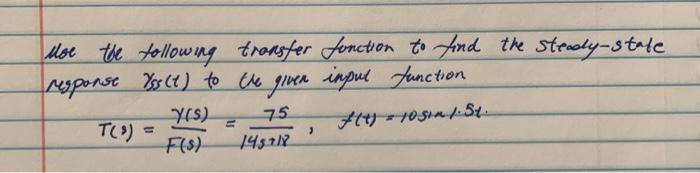 Use the following transfer function to find the steady-state
response Yss(t) to the given input function
T(s) = Y(s)/F(s) = 75/14s+18 , f(t) = 10 sin 1.5t.